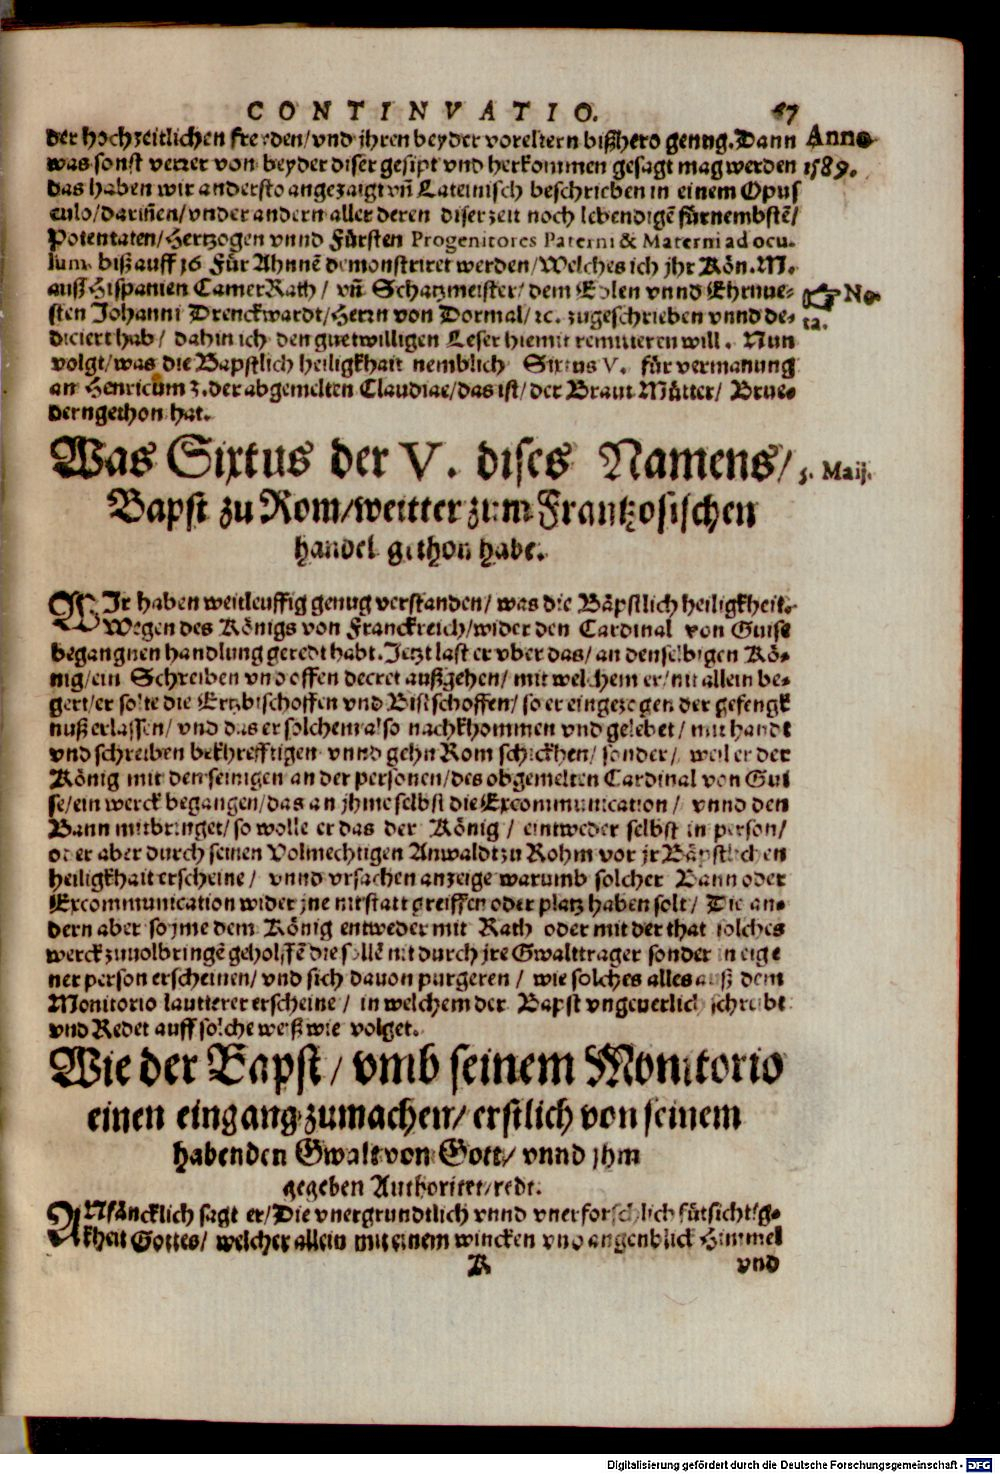 CONTINVATIO. 67
der hochzeitlichen frewden/vnd jhren beyder voreltern bißhero genug. Dann Anno
was sonst verrer von beyder diser gesipt vnd herkommen gesagt mag werden 1589.
das haben wir andersto angezaigt vñ Lateinisch beschrieben in einem Opus
culo/dariñen/vnder andern aller deren diser zeit noch lebendigẽ fürnembstẽ/
Potentaten/Hertzogen vnnd Fürsten Progenitores Paterni & Materni ad ocu-
lum biß auff 16 Für Ahnnẽ demonstriret werden/Welches ich jhr Kön. M.
auß Hispanien CamerRath/ vñ Schatzmeister/dem Edlen vnnd Ehrnue- ☞No-
sten Johanni Drenckwardt/Herrn von Dormal/ꝛc. zugeschrieben vnnd de- ta.
diciert hab/ dahin ich den guetwilligen Leser hiemit remitieren will. Nun
volgt/was die Bapstlich heiligkhait nemblich Sixtus V. für vermanung
an Henricum 3. der abgemelten Claudiae/das ist/der Braut Mütter/ Brue-
dern gethon hat.
Was Sixtus der V. dises Namens/ 5. Maij.
Bapst zu Rom/weitter zum Frantzosischen
handel gethon habe.
WJr haben weitleuffig genug verstanden/ was die Bäpstlich heiligkheit-
Wegen des Königs von Franckreich/wider den Cardinal von Guise
begangnen handlung geredt habt. Jetzt last er vber das/ an denselbigen Kö-
nig/ein Schreiben vnd offen decret außgehen/ mit welchem er/nit allein be-
gert/er solte die Ertzbischoffen vnd Bistschoffen/ so er eingezogen der gefengk
nuß erlassen/ vnd das er solchem also nachkhommen vnd gelebet/ mit handt
vnd schreiben bekhrefftigen vnnd gehn Rom schickhen/ sonder/ weil er der
König mit den seinigen an der personen/des obgemelten Cardinal von Gui
se/ein werck begangen/das an jhme selbst die Excommunication/ vnnd den
Bann mitbringet/so wolle er das der König/ eintweder selbst in person/
oder aber durch seinen Volmechtigen Anwaldt zu Rohm vor jr Bäpstlichen
heiligkhait erscheine/ vnnd vrsachen anzeige warumb solcher Bann oder
Excommunication wider jne nit statt greiffen oder platz haben solt/ Die an-
dern aber so jme dem König entweder mit Rath oder mit der that solches
werck zuuolbringẽ geholffẽ die sollẽ nit durch jre Gwalttrager sonder in eige
ner person erscheinen/ vnd sich dauon purgeren/ wie solches alles auß dem
Monitorio lautterer erscheine/ in welchem der Bapst vngeuerlich schreibt
vnd Redet auff solche weiß wie volget.
Wie der Bapst/ vmb seinem Monitorio
einen eingang zumachen/ erstlich von seinem
habenden Gwalt von Gott/ vnnd jhm
gegeben Authoritet/redt.
ANfäncklich sagt er/Die vnergrundtlich vnnd vnerforschlich fürsichtig-
kheit Gottes/ welcher allein mit einem wincken vnd augenblick Himmel
K vnd
Digitalisierung gefördert durch die Deutsche Forschungsgemeinschaft - DFG